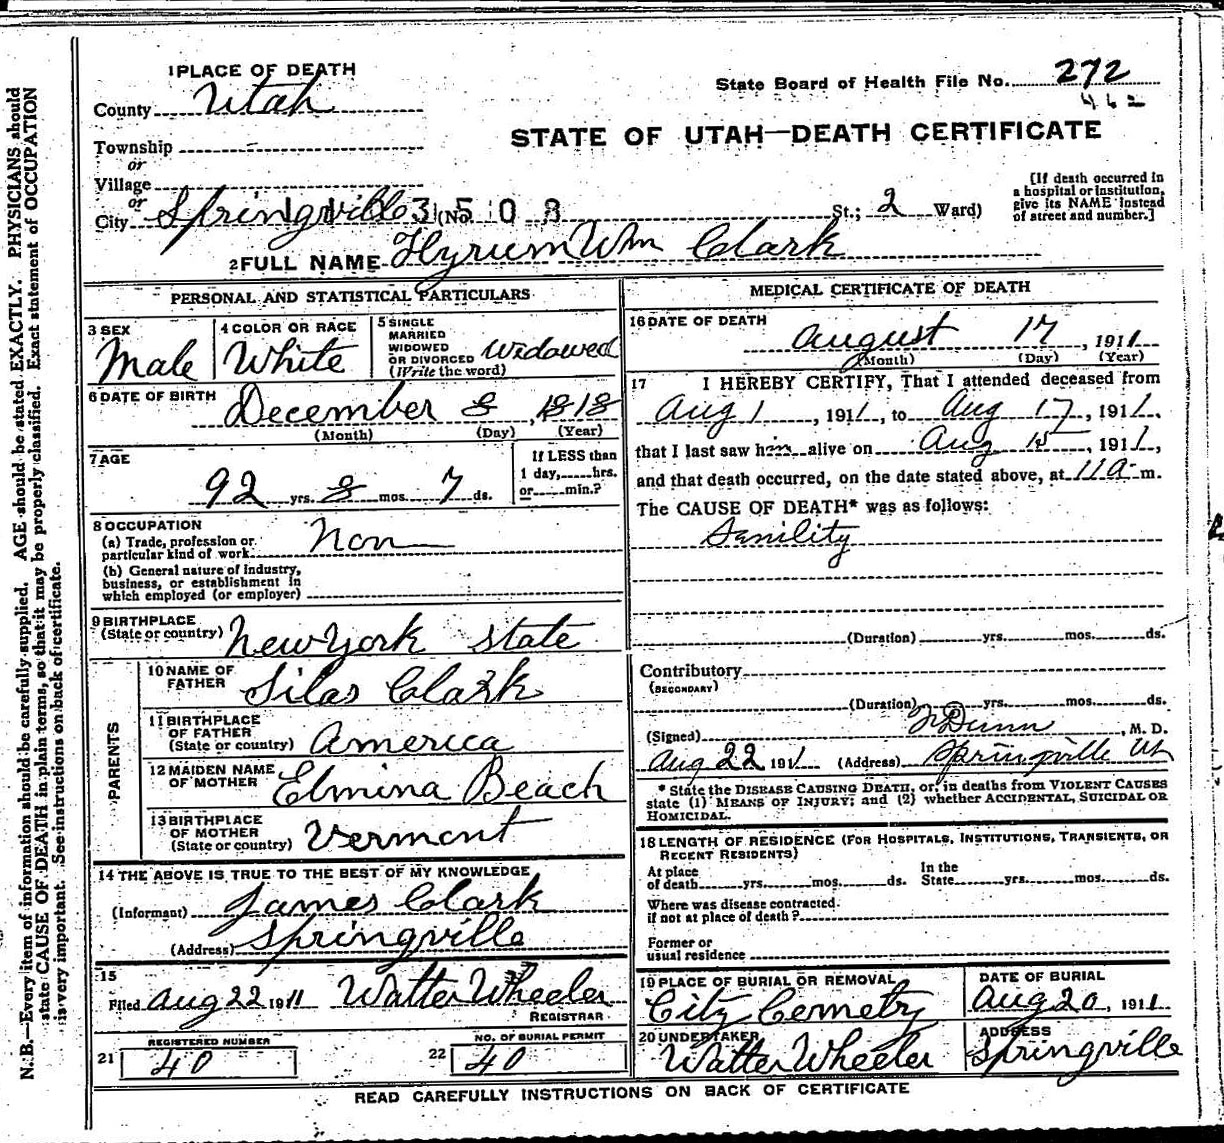 1 PLACE OF DEATH
State Board of Health File No. 272
County Utah
462
STATE OF UTAH—DEATH CERTIFICATE
Township
or
Village
or
City Springville (No. St.; 2 Ward)
113508
[If death occurred in
a hospital or institution,
give its NAME instead
of street and number.]
2 FULL NAME Hyrum Wm Clark
PERSONAL AND STATISTICAL PARTICULARS
3 SEX
Male
4 COLOR OR RACE
White
5 SINGLE
MARRIED
WIDOWED
OR DIVORCED
(Write the word)
Widowed
6 DATE OF BIRTH
December 8, 1818
(Month) (Day) (Year)
7 AGE
92 yrs. 8 mos. 7 ds.
If LESS than
1 day,......hrs.
or......min.?
8 OCCUPATION
(a) Trade, profession or
particular kind of work Non
(b) General nature of industry,
business, or establishment in
which employed (or employer)
9 BIRTHPLACE
(State or country) New York State
PARENTS
10 NAME OF
FATHER Silas Clark
11 BIRTHPLACE
OF FATHER
(State or country) America
12 MAIDEN NAME
OF MOTHER Elmina Beach
13 BIRTHPLACE
OF MOTHER
(State or country) Vermont
14 THE ABOVE IS TRUE TO THE BEST OF MY KNOWLEDGE
(Informant) James Clark
(Address) Springville
15
Filed Aug 22 1911 Walter Wheeler
REGISTRAR
REGISTERED NUMBER
21 40
NO. OF BURIAL PERMIT
22 40
MEDICAL CERTIFICATE OF DEATH
16 DATE OF DEATH
August 17, 1911
(Month) (Day) (Year)
17 I HEREBY CERTIFY, That I attended deceased from
Aug 1, 1911, to Aug 17, 1911,
that I last saw him alive on Aug 15, 1911,
and that death occurred, on the date stated above, at 11 a m.
The CAUSE OF DEATH* was as follows:
Senility
(Duration) yrs. mos. ds.
Contributory
(SECONDARY)
(Duration) yrs. mos. ds.
(Signed) Dunn, M. D.
Aug 22 1911 (Address) Springville Ut
* State the DISEASE CAUSING DEATH, or, in deaths from VIOLENT CAUSES
state (1) MEANS OF INJURY; and (2) whether ACCIDENTAL, SUICIDAL OR
HOMICIDAL.
18 LENGTH OF RESIDENCE (FOR HOSPITALS, INSTITUTIONS, TRANSIENTS, OR
RECENT RESIDENTS)
At place
of death yrs. mos. ds.
In the
State yrs. mos. ds.
Where was disease contracted
if not at place of death?
Former or
usual residence
19 PLACE OF BURIAL OR REMOVAL
City Cemetry
DATE OF BURIAL
Aug 20, 1911
20 UNDERTAKER
Walter Wheeler
ADDRESS
Springville
READ CAREFULLY INSTRUCTIONS ON BACK OF CERTIFICATE
N. B.—Every item of information should be carefully supplied. AGE should be stated EXACTLY. PHYSICIANS should
state CAUSE OF DEATH in plain terms, so that it may be properly classified. Exact statement of OCCUPATION
is very important. See instructions on back of certificate.